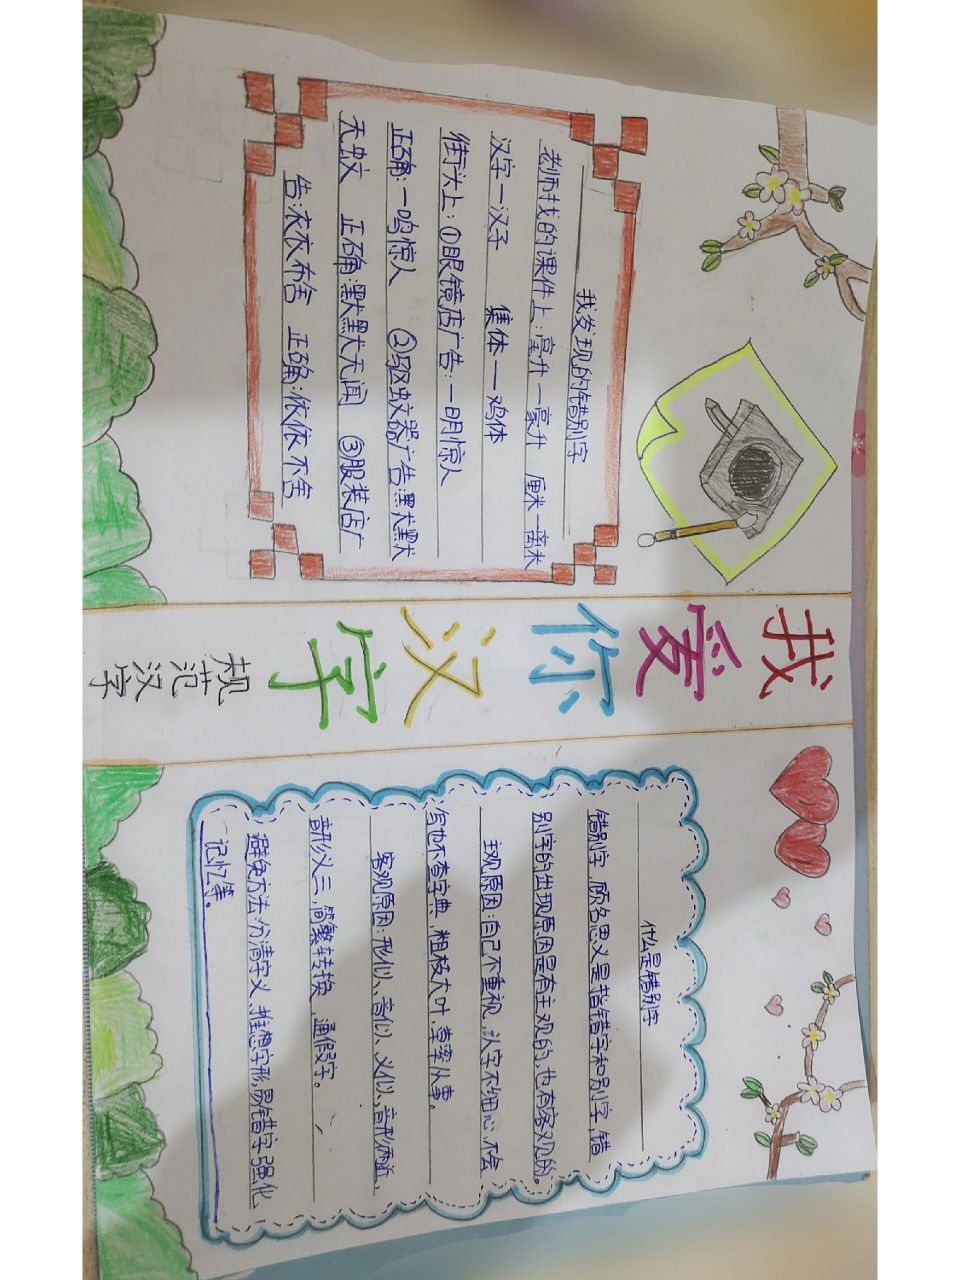 我爱你汉字
规范汉字
我发现的错别字
老师找的课件上:毫升一豪升 厘米一离米
汉字一汉子 集体一鸡体
街头上:①眼镜店广告:一明惊人
正确:一鸣惊人 ②驱蚊器广告:默默
无蚊 正确:默默无闻 ③服装店广
告:衣衣布舍 正确:依依不舍
什么是错别字
错别字,顾名思义是指错字和别字,错
别字的出现原因是有主观的,也有客观的。
主观原因:自己不重视,认字不细心,不会
写也不查字典,粗枝大叶,草率从事。
客观原因:形似、音似、义似、音形两近、
音形义三,简繁转换,通假字。
避免方法:分清字义、推想字形、易错字强化
记忆等。